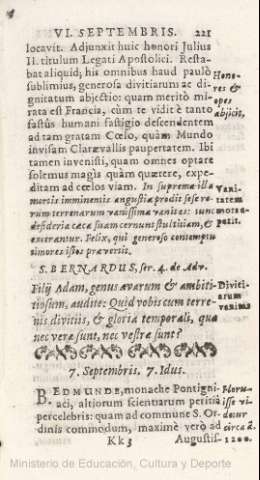 VI. SEPTEMBRIS. 221
locavit. Adjunxit huic honori Julius
II. titulum Legati Apostolici. Resta-
bat aliquid; his omnibus haud paulò
sublimius, generosa divitiarum ac di-
gnitatum abjectio: quam meritò mi-
rata est Francia, cùm te vidit è tanto
fastûs humani fastigio descendentem
ad tam gratam Cœlo, quàm Mundo
invisam Claravallis paupertatem. Ibi
tamen invenisti, quam omnes optare
solemus magis quàm quærere, expe-
ditam ad cœlos viam. In suprema illa
mortis imminentis angustia prodit sese re-
rum terrenarum vanissima vanitas: tunc
desideria cæca suam cernunt stultitiam, &
execrantur. Felix, qui generoso contemptu
timores istos prævertit.
Hono-
res &
opes
abjicit,
Vani-
tatem
morte
petit.
S. BERNARDUS, ser. 4. de Adv.
Filij Adam, genus avarum & ambiti-
tiosum, audite: Quid vobis cum terre-
nis divitiis, & gloria temporali, quæ
nec veræ sunt, nec vestræ sunt?
Diviti-
arum
vanitas
7. Septembris. 7. Idus.
BEDMUNDE, monache Pontigni-
aci, altiorum scientiarum peritia
percelebris: quam ad commune S. Or-
dinis commodum, maximè verò ad
Kk 3 Augustis-
Horu-
isse vi-
detur
circa a.
1200.
Ministerio de Educación, Cultura y Deporte